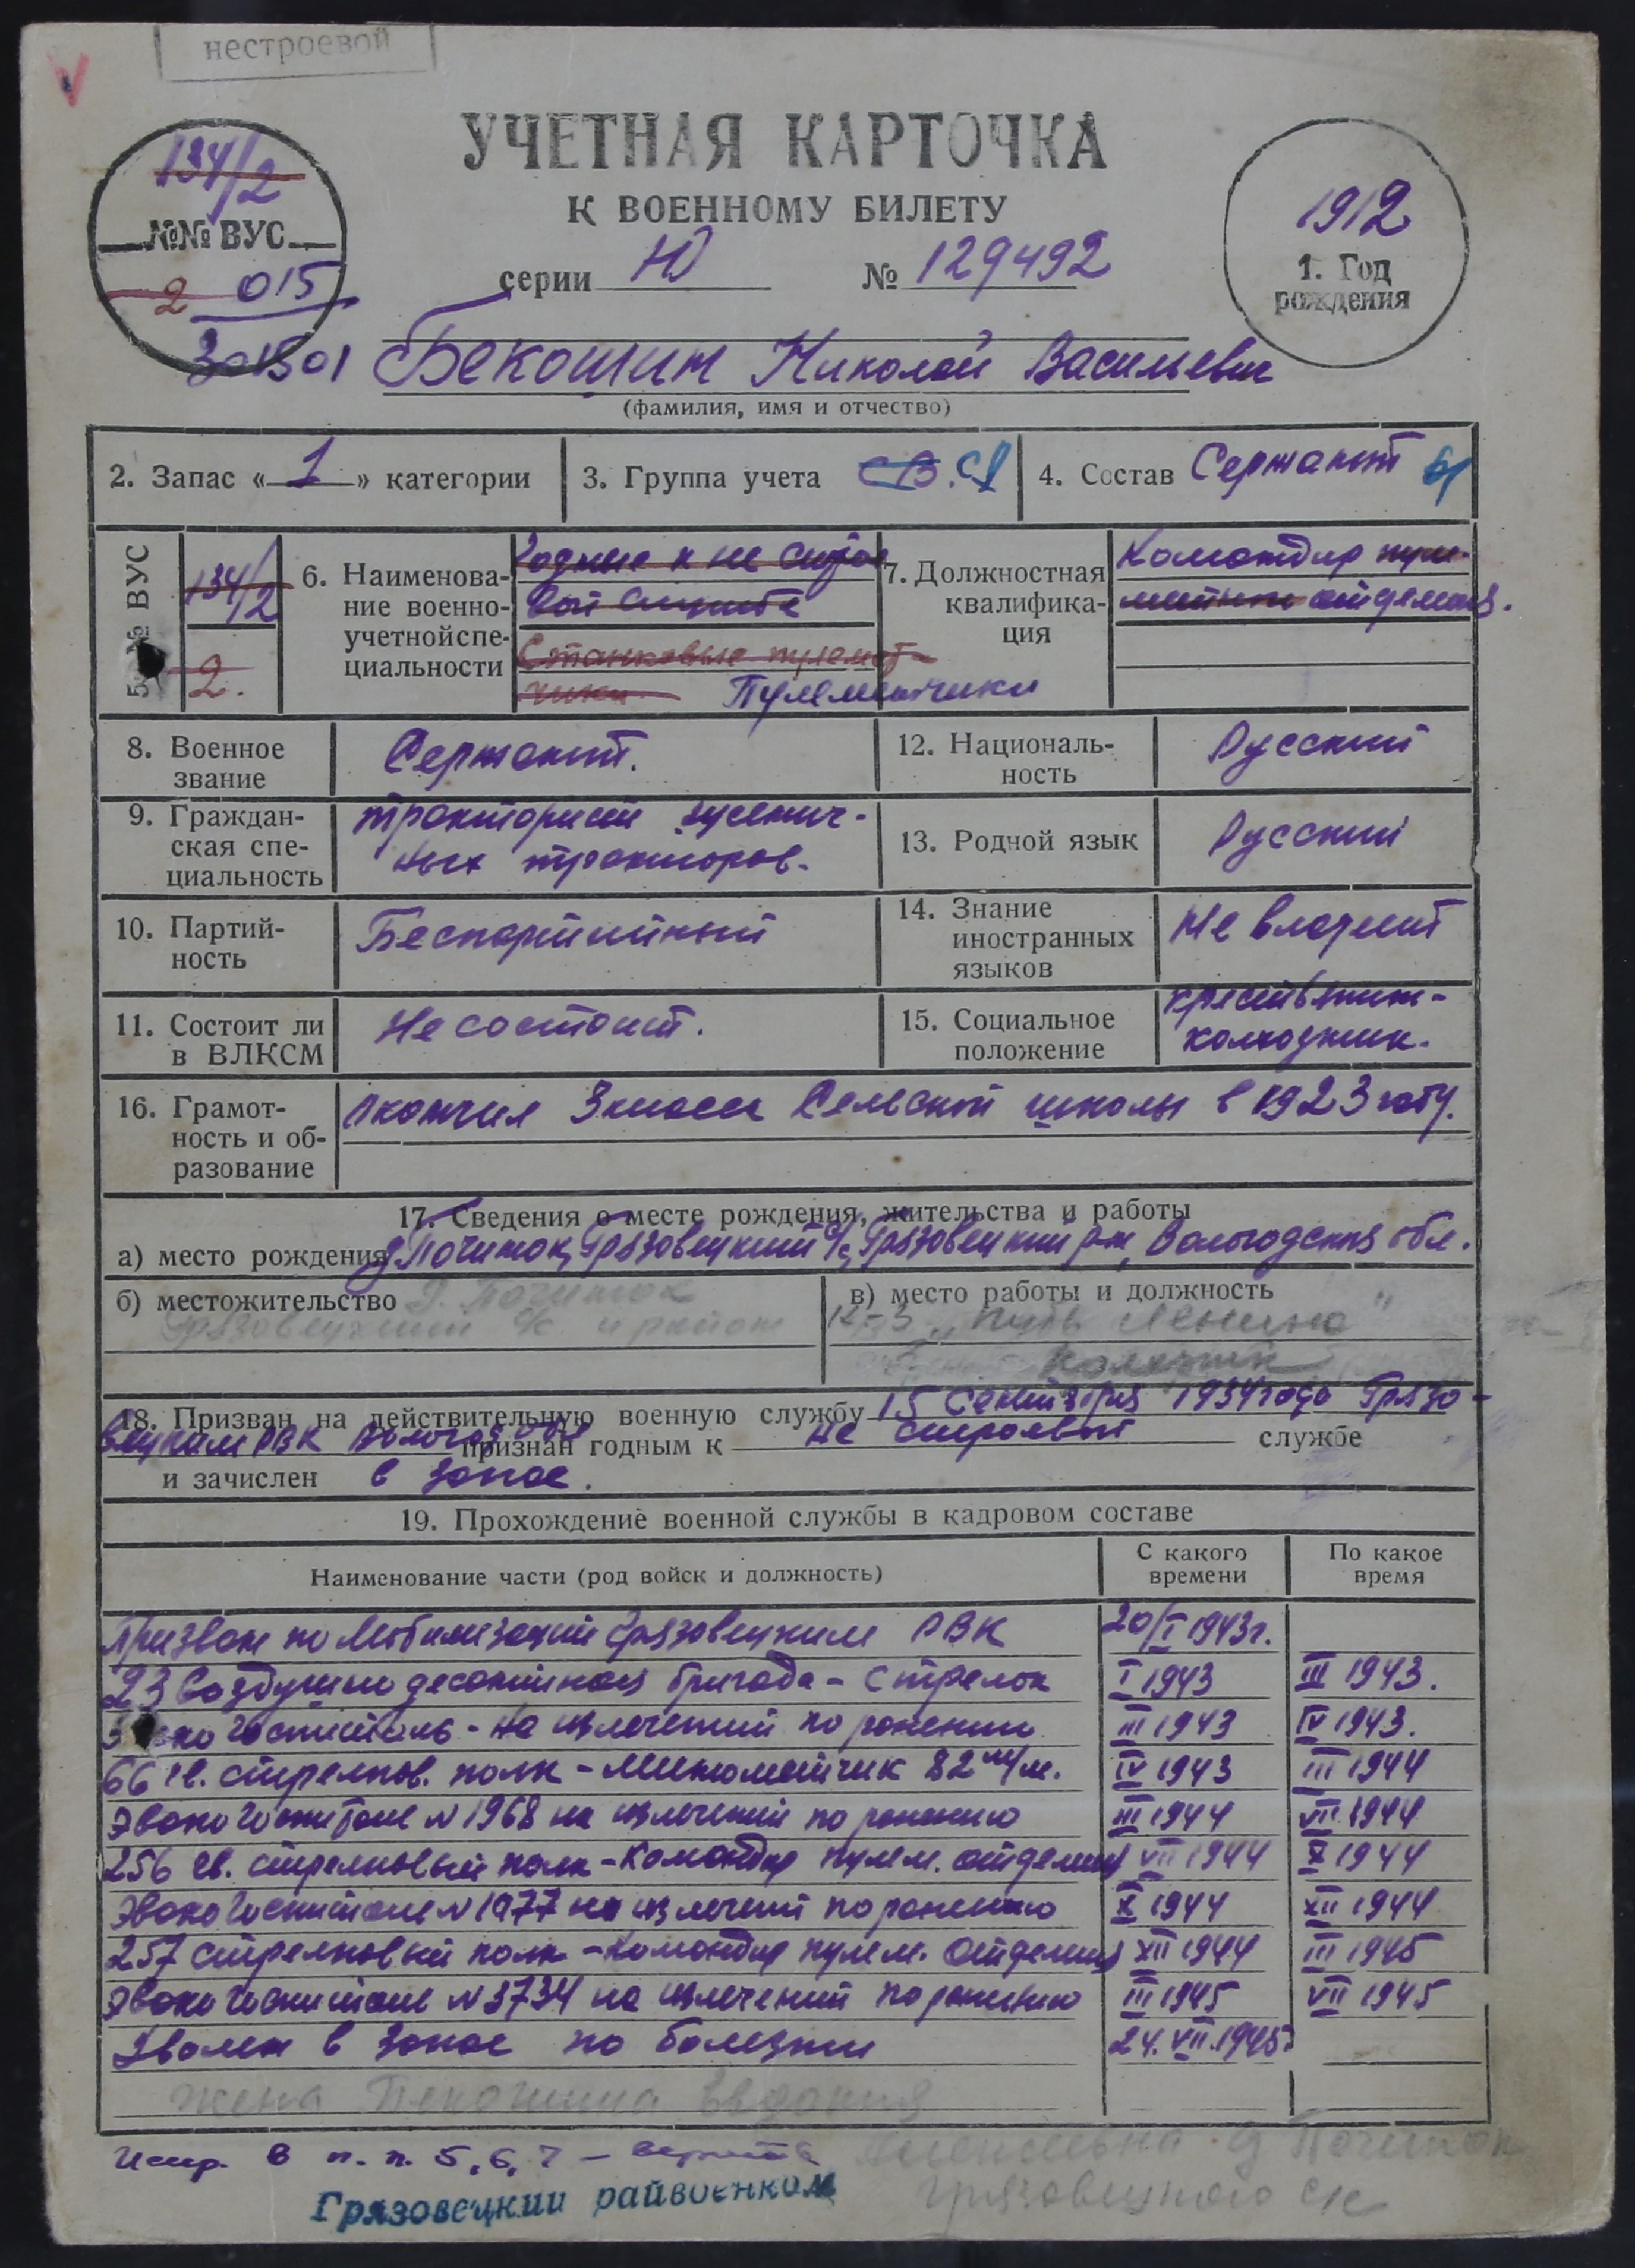 нестроевой
УЧЕТНАЯ КАРТОЧКА
К ВОЕННОМУ БИЛЕТУ
134/2
№№ ВУС
2 015
301501
серии Ю № 129492
1912
1. Год
рождения
Бекошин Николай Васильевич
(фамилия, имя и отчество)
2. Запас « 1 » категории
3. Группа учета СВ. СА
4. Состав Сержант
5. № ВУС
134/2
2.
6. Наименова-
ние военно-
учетной спе-
циальности
Годные к не строе
вой службе
Станковые пулемет-
чики Пулеметчики
7. Должностная
квалифика-
ция
Командир пуле-
метный отделения.
8. Военное
звание
Сержант.
12. Националь-
ность
Русский
9. Граждан-
ская спе-
циальность
тракторист гусенич-
ных тракторов.
13. Родной язык
Русский
10. Партий-
ность
Беспартийный
14. Знание
иностранных
языков
Не владеет
11. Состоит ли
в ВЛКСМ
Не состоит.
15. Социальное
положение
крестьянин-
колхозник.
16. Грамот-
ность и об-
разование
Окончил 3 класса Сельской школы в 1923 году.
17. Сведения о месте рождения, жительства и работы
а) место рождения д. Починок, Грязовецкий с/с, Грязовецкий р-н, Вологодская обл.
б) местожительство д. Починок
Грязовецкий с/с и район
в) место работы и должность
к-з "Путь Ленина"
Колхозник
18. Призван на действительную военную службу 15 Сентября 1934 года Грязо-
вецким РВК Вологод обл признан годным к не строевой службе
и зачислен в запас.
19. Прохождение военной службы в кадровом составе
Наименование части (род войск и должность)
С какого
времени
По какое
время
Призван по Мобилизаций Грязовецким РВК 20/I 1943г.
23 Воздушно десантная бригада - Стрелок I 1943 III 1943.
госпиталь - на излечений по ранению III 1943 IV 1943.
66 гв. стрелков. полк - Минометчик 82 м/м. IV 1943 III 1944
Эвако госпитале N 1968 на излечений по ранению III 1944 VII 1944
256 гв. стрелковый полк - Командир пулем. отделения VII 1944 X 1944
Эвако госпитале N 1977 на излечений по ранению X 1944 XII 1944
257 стрелковый полк - Командир пулем. Отделения XII 1944 III 1945
Эвако госпитале N 3734 на излечений по ранению III 1945 VII 1945
Уволен в запас по болезни 24.VII.1945
жена Бекошина
Испр. в п. п. 5, 6, 7 - верить
д Починок
Грязовецкого с/с
Грязовецкий райвоенком